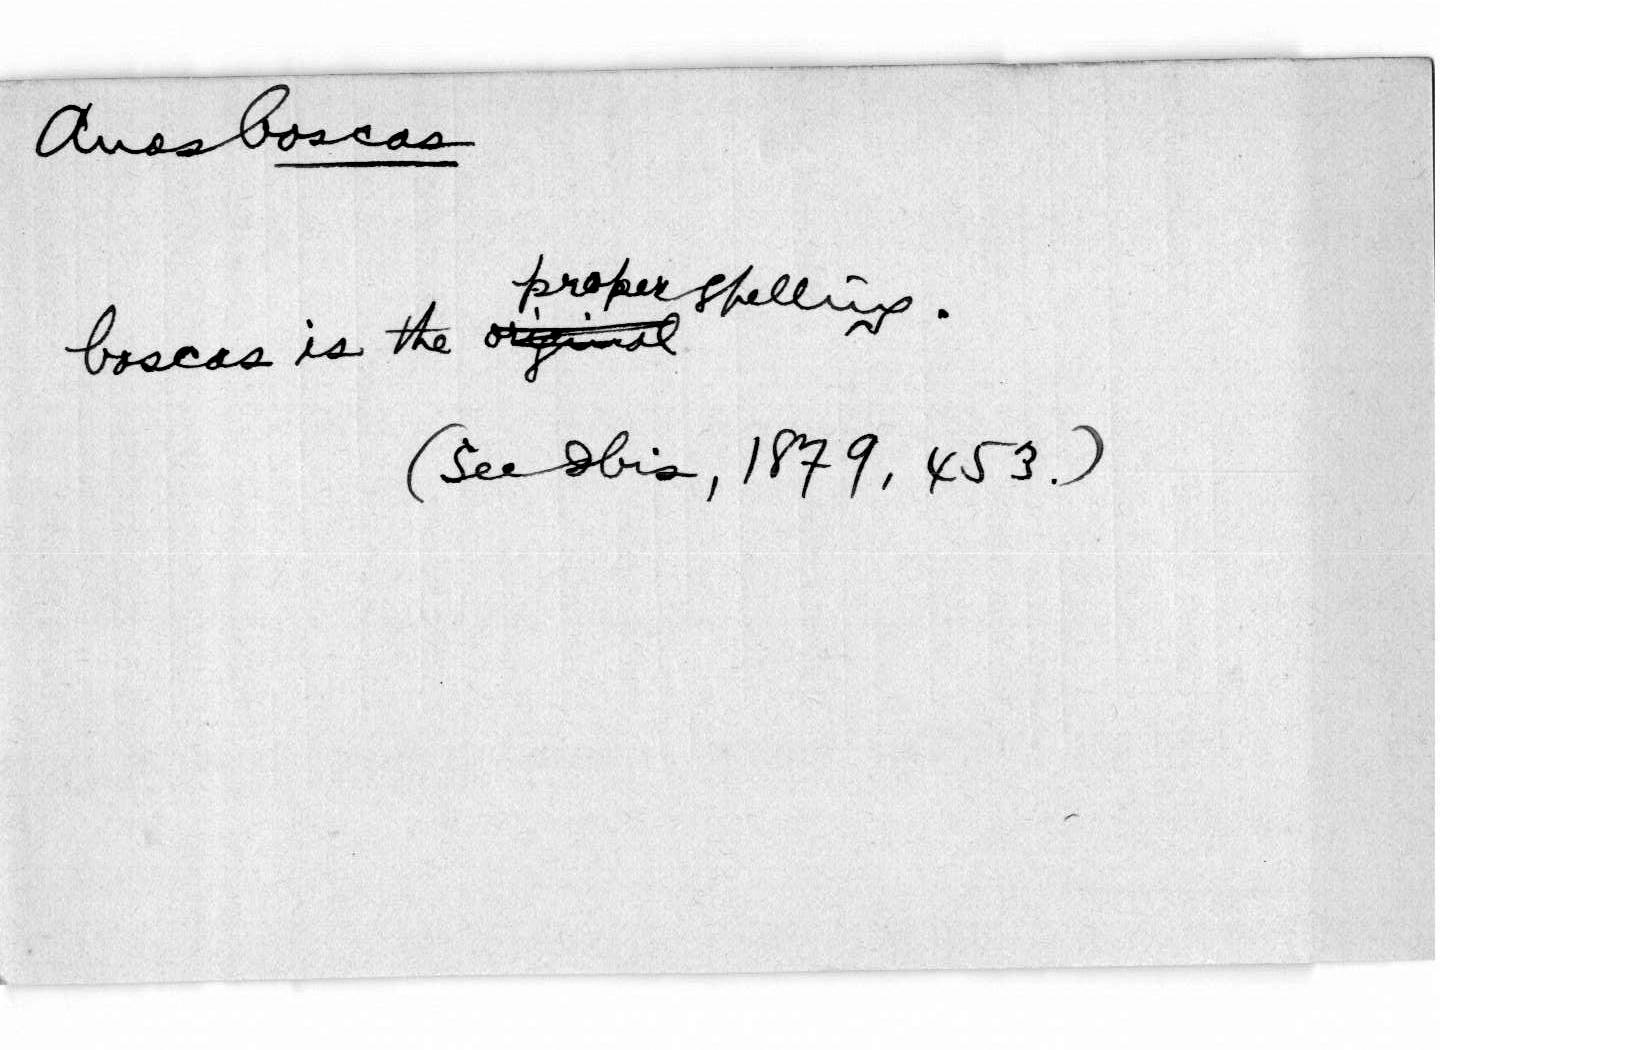 Anas boscas
boscas is the original proper spelling.
(See Ibis, 1879, 453.)